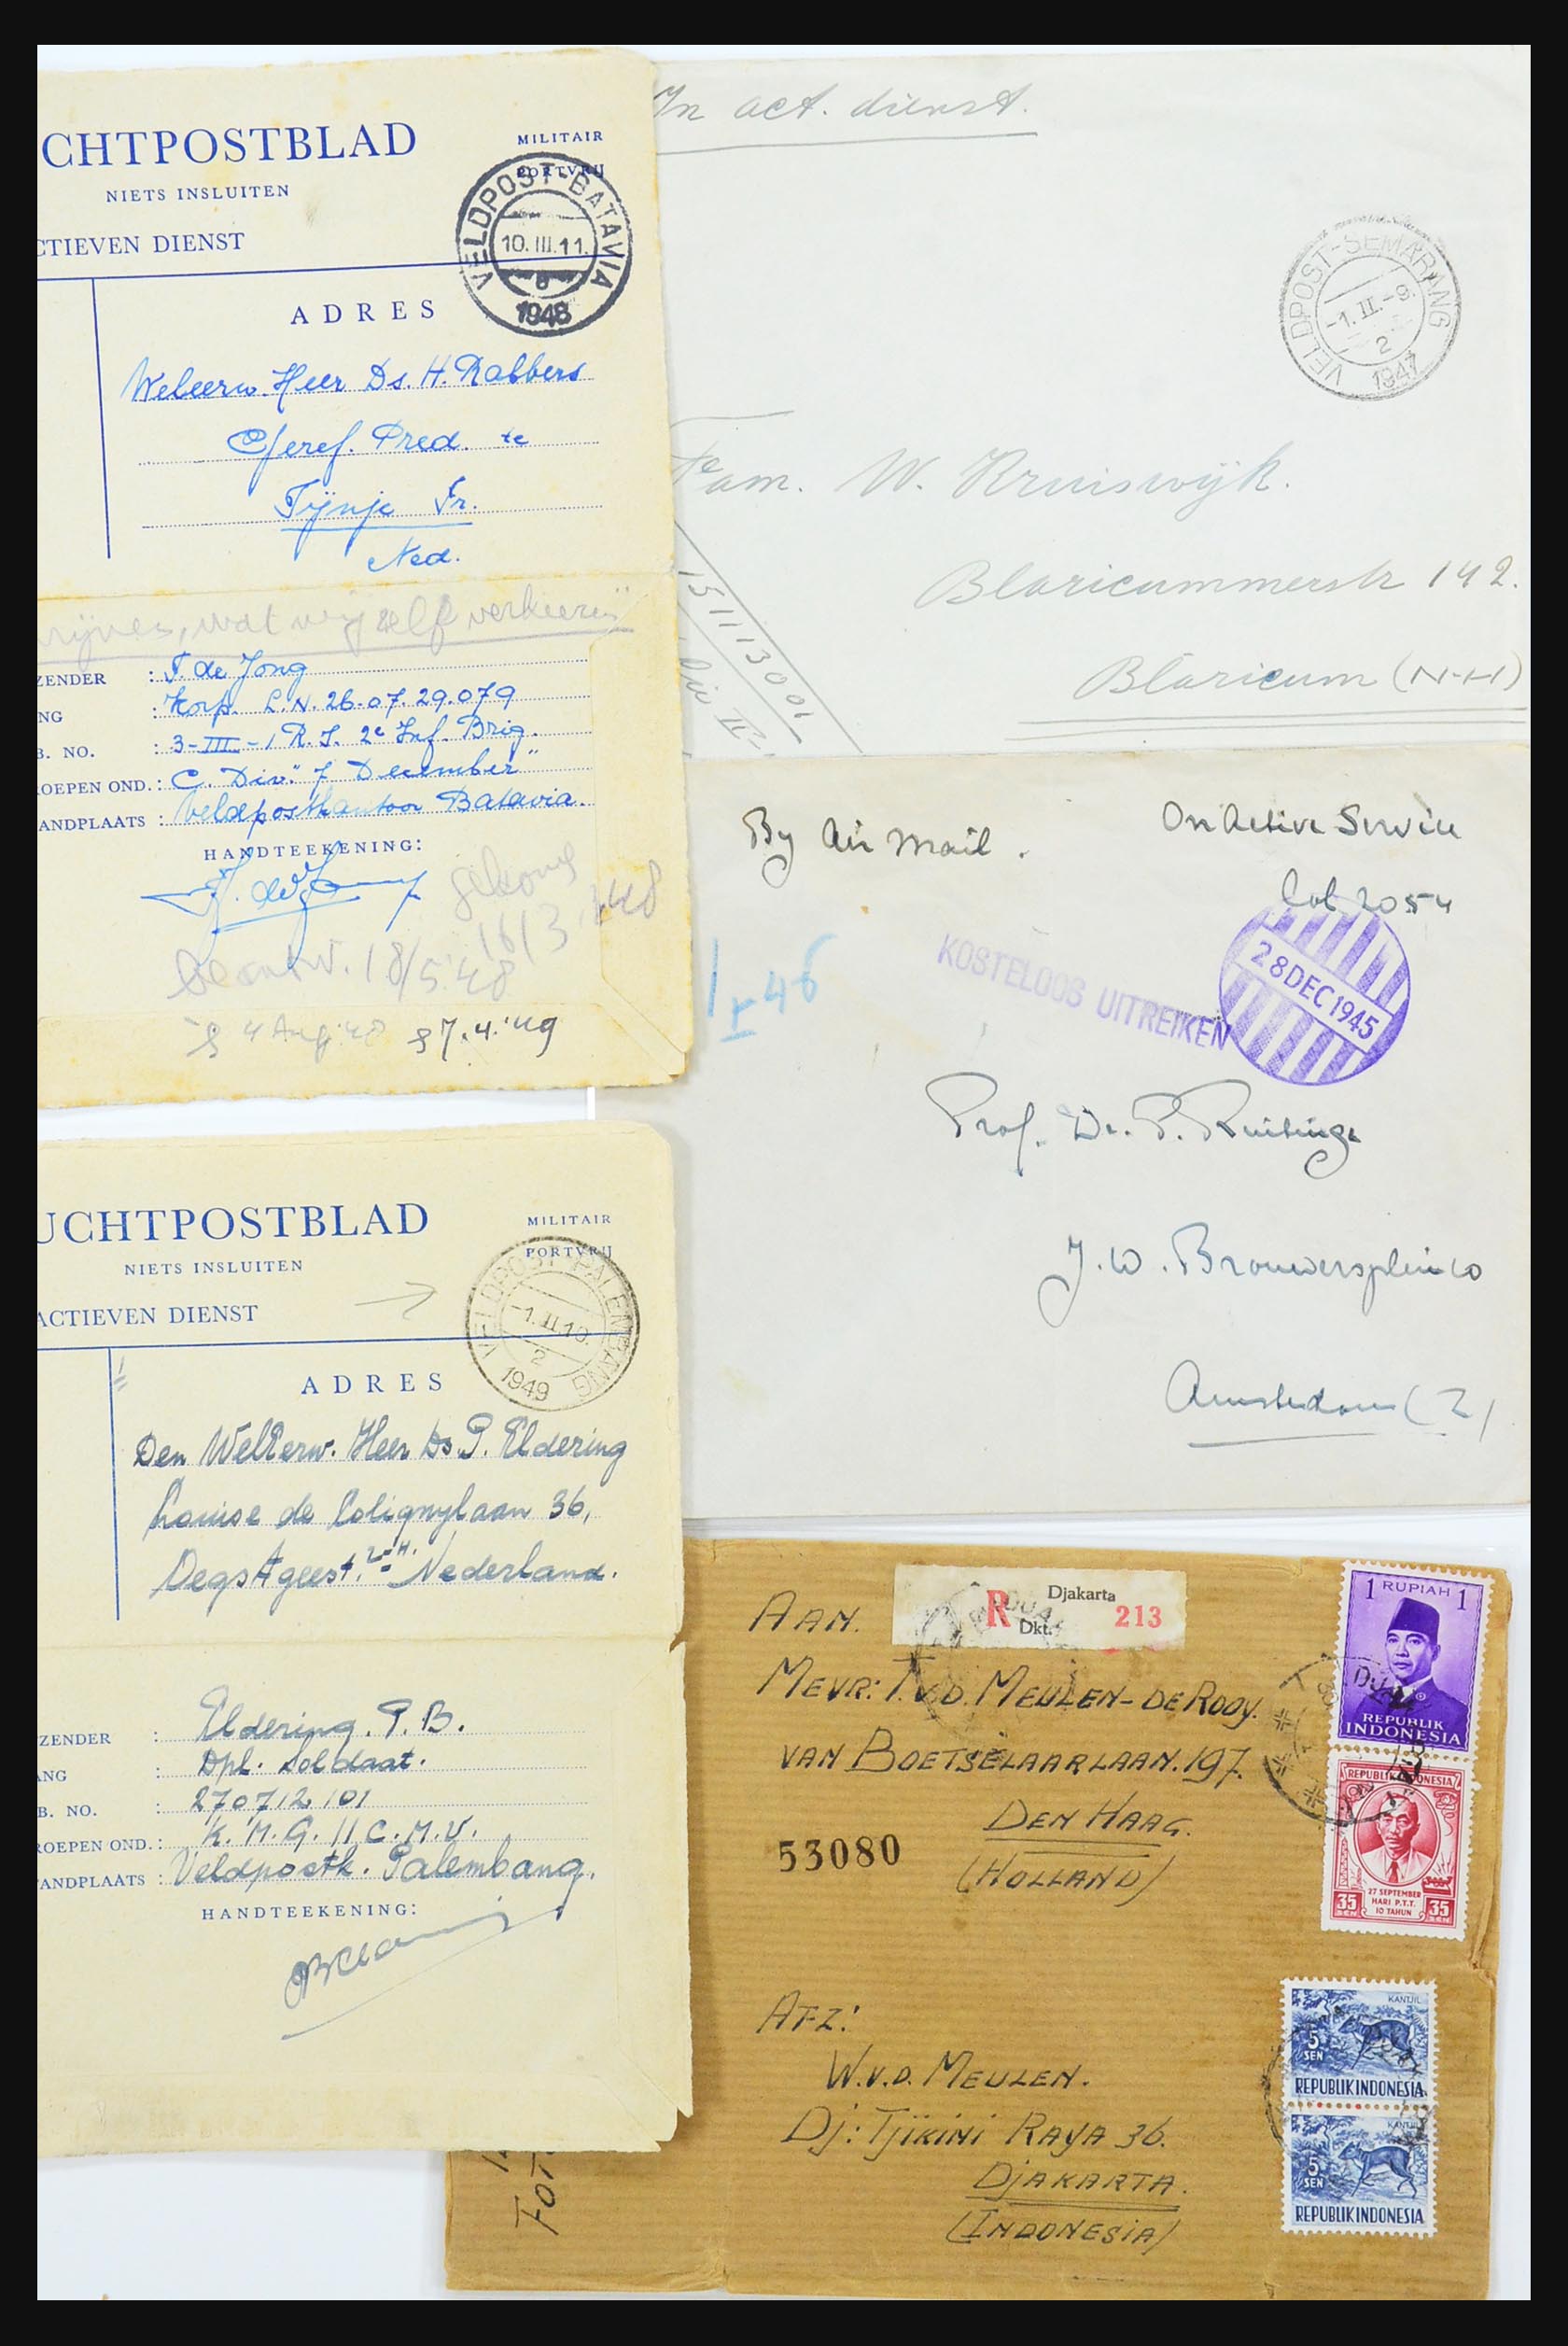 CHTPOSTBLAD
NIETS INSLUITEN
CTIEVEN DIENST
MILITAIR
PORTVRIJ
VELDPOST-BATAVIA
10.III.11.
1948
ADRES
Weleerw. Heer Ds. H. Rabbers
Geref. Pred. te
Tijnje Fr.
Ned.
wat wij zelf verkeeren"
ZENDER : T. de Jong
NG : Korp. L.N. 26.07.29.079
B. NO. : 3-III-1 R.I. 2e Inf. Brig.
ROEPEN OND. : C. Div. "7 December"
ANDPLAATS : Veldpostkantoor Batavia.
HANDTEEKENING:
16/3.
beantw. 18/5.48
4 Aug. 48 7.4.'49
In act. dienst.
VELDPOST-SEMARANG
-1.II.-9.
2
1947
Fam. W. Kruiswijk.
Blaricummerstr 142.
Blaricum (N-H)
By Air Mail.
On Active Service
2054
KOSTELOOS UITREIKEN
28 DEC 1945
Prof. Dr. P. Ruitinga
J.W. Brouwersplein 10
Amsterdam (Z)
UCHTPOSTBLAD
NIETS INSLUITEN
ACTIEVEN DIENST
MILITAIR
PORTVRIJ
VELDPOST PALEMBANG
-1.II.10.
2
1949
ADRES
Den WelEerw. Heer Ds. P. Eldering
Louise de Colignylaan 36,
Oegstgeest. Z-H. Nederland.
ZENDER : Eldering. P.B.
ANG : Dpl. Soldaat.
B. NO. : 270712101
ROEPEN OND. : K.M.G. 11 C.M.V.
ANDPLAATS : Veldpostk. Palembang.
HANDTEEKENING:
R Djakarta
Dkt. 213
AAN.
MEVR: T.V.D. MEULEN-DE ROOY.
VAN BOETSELAARLAAN. 197.
DEN HAAG.
(HOLLAND)
53080
AFZ:
W.V.D. MEULEN.
DJ: TJIKINI RAYA 36.
DJAKARTA.
(INDONESIA)
1 RUPIAH 1
REPUBLIK
INDONESIA
REPUBLIK INDONESIA
27 SEPTEMBER
HARI P.T.T.
10 TAHUN
35 SEN
35 SEN
KANTJIL
5
SEN
REPUBLIK INDONESIA
KANTJIL
5
SEN
REPUBLIK INDONESIA